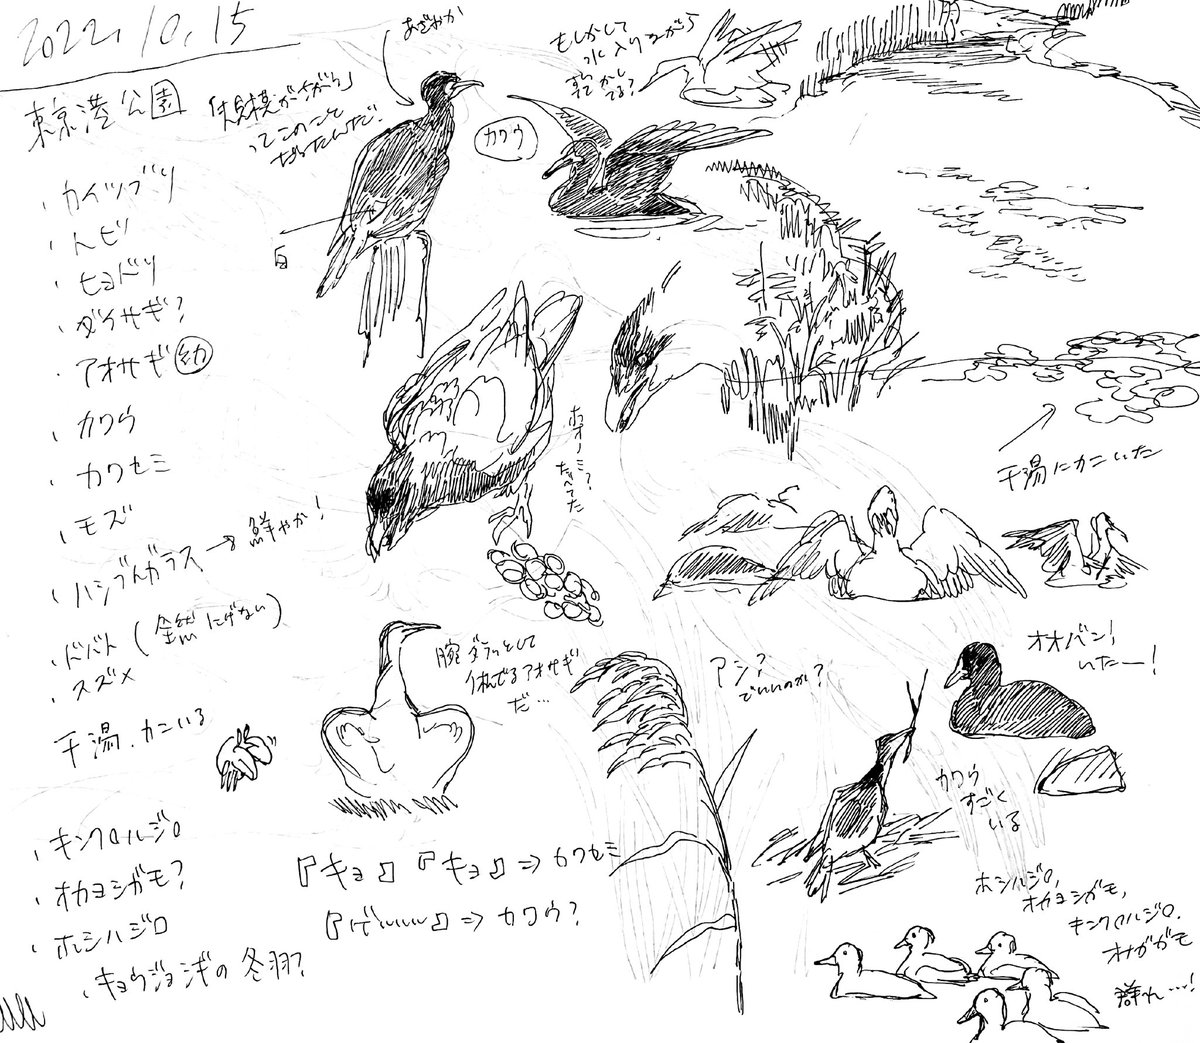 2022.10.15
東京港公園
・カイツブリ
・トビ
・ヒヨドリ
・ダイサギ?
・アオサギ 幼
・カワウ
・カワセミ
・モズ
・ハシブトガラス→鮮やか!
・ドバト(全然にげない)
・スズメ
干潟.カニいる
・キンクロハジロ
・オカヨシガモ?
・ホシハジロ
・キョウジョシギの冬羽?
あざやか
ってこのこと
だったんだ!
白
カワウ
もしかして
水入りながら
乾かし
てる?
干潟にカニいた
たべてた
腕ダラッとして
休んでるアオサギ
だ…
『キョ』『キョ』⇒カワセミ
⇒カワウ?
アシ?
でいいのか?
オオバン!
いたー!
カワウ
すごく
いる
ホシハジロ,
オカヨシガモ,
キンクロハジロ,
オナガガモ
群れ…!